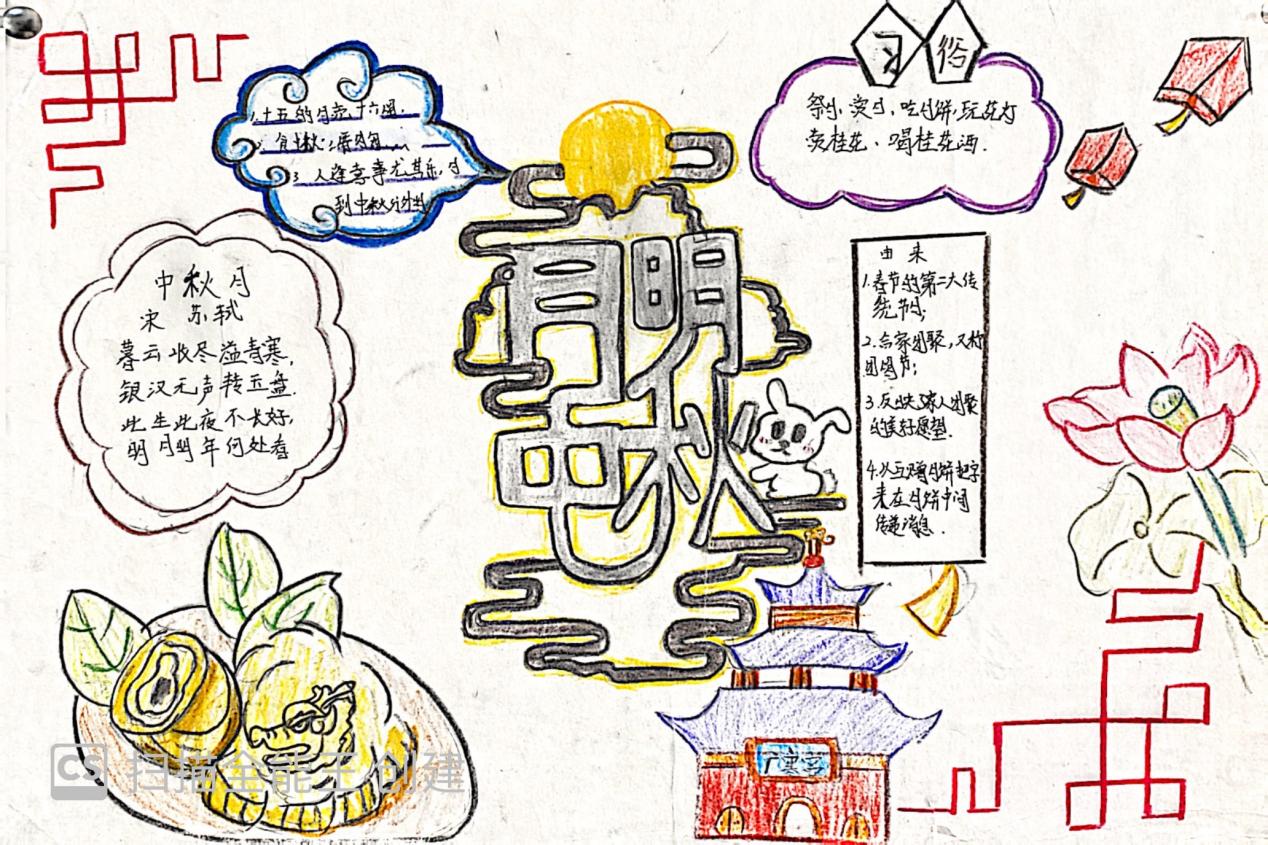 1.十五的月亮十六圆.
3.人逢喜事尤其乐,月
到中秋分外
习俗
祭月、赏月、吃月饼、玩花灯
赏桂花、喝桂花酒.
中秋月
宋 苏轼
暮云收尽溢青寒,
银汉无声转玉盘.
此生此夜不长好,
明月明年何处看
月明
中秋
由来
1.春节的第二大传
统节日;
2.合家团聚,又称
团圆节;
3.反映家人团聚
的美好愿望.
4.从互赠月饼起字
来在月饼中间
传递消息.
广寒宫
CS 扫描全能王 创建